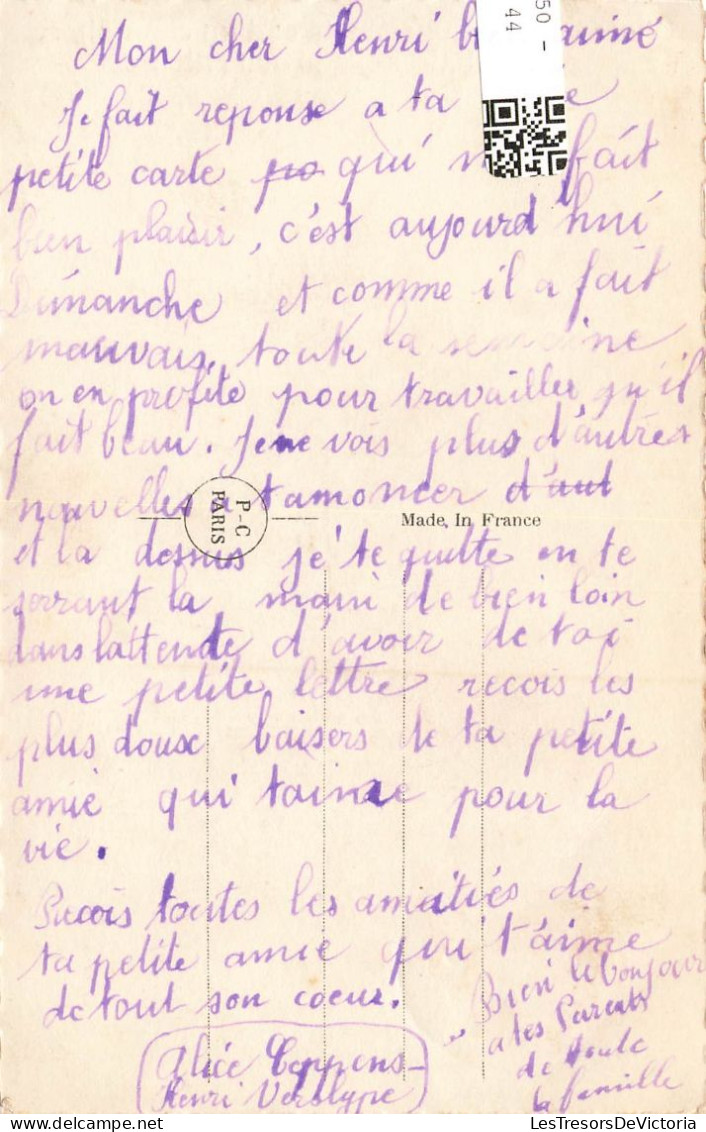 50 -
44
Mon cher Henri
Je fait reponse a ta
petite carte qui fait
bien plaisir, c'est aujourd'hui
Dimanche et comme il a fait
mauvais, toute la semeine
on en profite pour travailler qu'il
fait beau. Je ne vois plus d'autres
nouvelles a tamoncer d'aut
P-C
PARIS
Made In France
et la dessus je te quitte en te
serrant la main de bien loin
dans lattende d'avoir de toi
une petite lettre recois les
plus doux baisers de ta petite
amie qui taime pour la
vie.
Recois toutes les amitiés de
ta petite amie qui t'aime
de tout son coeur.
Bien le bonjour
a tes Parents
de toute
la famille
Alice Ceppens-
Henri Verslype
LesTresorsDeVictoria